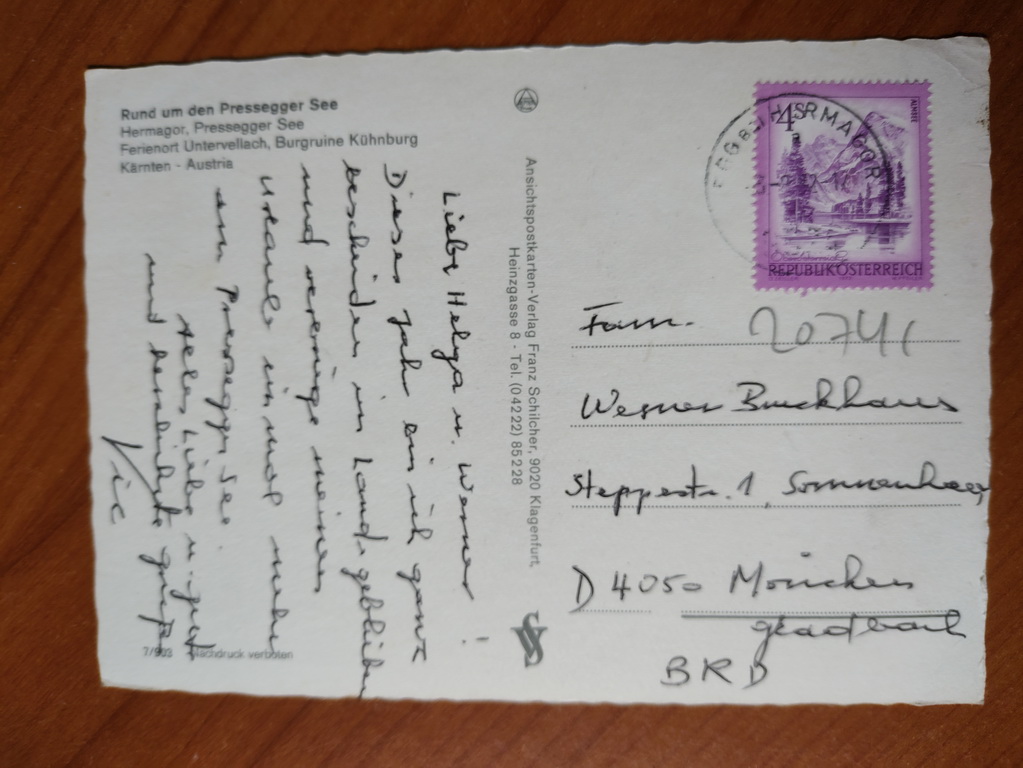 Rund um den Pressegger See
Hermagor, Pressegger See
Ferienort Untervellach, Burgruine Kühnburg
Kärnten - Austria
Liebe Helga u. Werner!
Dieses Jahr bin ich ganz
bescheiden im Lande geblieben
und verbringe meinen
Urlaub einmal mehr
am Pressegger See.
Alles Liebe u. gute
und herzlichste Grüße
Vic
7/903 Nachdruck verboten
Ansichtspostkarten-Verlag Franz Schilcher, 9020 Klagenfurt,
Heinzgasse 8 - Tel. (0 42 22) 85 2 28
HERMAGOR
4 S
ALMSEE
REPUBLIK ÖSTERREICH
Fam.
Werner Buckhaus
Steppestr. 1,
D 4050 Mönchen
gladbach
BRD